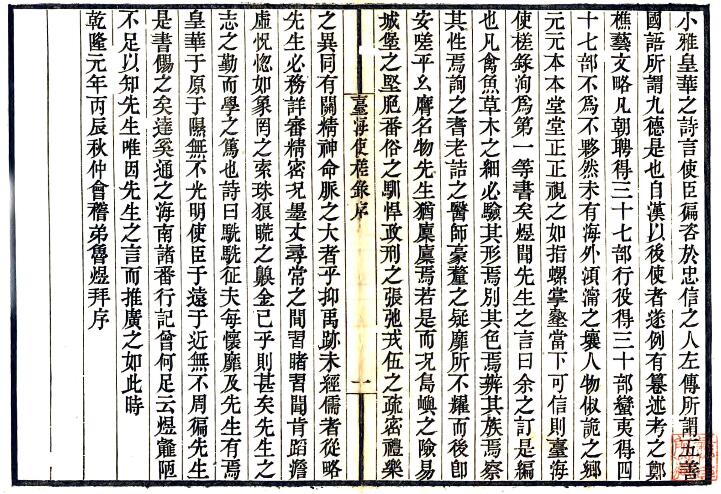 小雅皇華之詩言使臣徧咨於忠信之人左傳所謂五善
國語所謂九德是也自漢以後使者遂例有纂述考之鄭
樵藝文略凡朝聘得三十七部行役得三十部蠻夷得四
十七部不爲不夥然未有海外澒瀹之壤人物俶詭之鄉
元元本本堂堂正正視之如指螺掌壑當下可信則臺海
使槎錄洵爲第一等書矣煜聞先生之言曰余之訂是編
也凡禽魚草木之細必驗其形焉別其色焉辨其族焉察
其性焉詢之耆老詰之醫師豪釐之疑靡所不耀而後卽
安嗟乎幺麿名物先生猶廩廩焉若是而况島嶼之險易
城堡之堅脆番俗之馴悍政刑之張弛戎伍之疏密禮樂
臺海使槎錄序
一
之異同有關精神命脈之大者乎抑禹跡未經儒者從略
先生必務詳審精密况墨丈尋常之間習睹習聞肯蹈澹
虛怳惚如象罔之索珠狼䁱之躾金已乎則甚矣先生之
志之勤而學之篤也詩曰駪駪征夫每懷靡及先生有焉
皇華于原于隰無不光明使臣于遠于近無不周徧先生
是書倜之矣達奚通之海南諸番行記曾何足云煜龕陋
不足以知先生唯因先生之言而推廣之如此時
乾隆元年丙辰秋仲會稽弟魯煜拜序